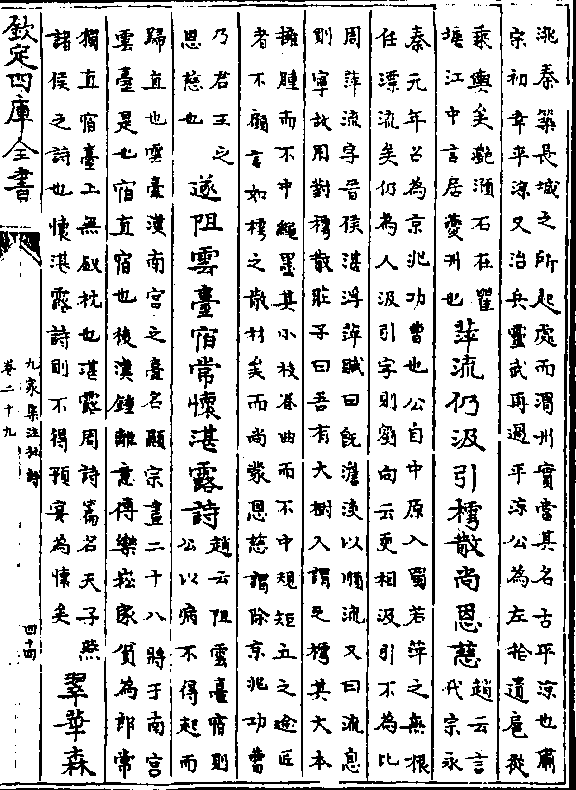 洮秦築長城之所起處而渭州實當其名古平涼也肅
宗初幸平涼又治兵靈武再過平涼公為左拾遺扈從
乘輿矣灔澦石在瞿
塘江中言居夔州也 萍流仍汲引樗散尚恩慈 趙云言
代宗永
泰元年召為京兆功曹也公自中原入蜀若萍之無根
任漂流矣仍為人汲引字則劉向云更相汲引不為比
周萍流字晉侯湛浮萍賦曰旣澹淡以順流又曰流息
則寧故用對樗散莊子曰吾有大樹人謂之樗其大本
擁腫而不中繩墨其小枝卷曲而不中規矩立之途匠
者不顧言如樗之散材矣而尚蒙恩慈謂除京兆功曹
乃君王之
恩慈也 遂阻雲臺宿常懷湛露詩 趙云阻雲臺宿則
公以病不得起而
歸直也雲臺漢南宮之臺名顯宗畫二十八將于南宮
雲臺是也宿直宿也後漢鍾離意傳樂崧家貧為郎常
獨直宿臺上無𬒳枕也湛露周詩篇名天子燕
諸侯之詩也懷湛露詩則不得預宴為懷矣 翠華森
欽定四庫全書
九家集注杜詩
卷二十九
四十四